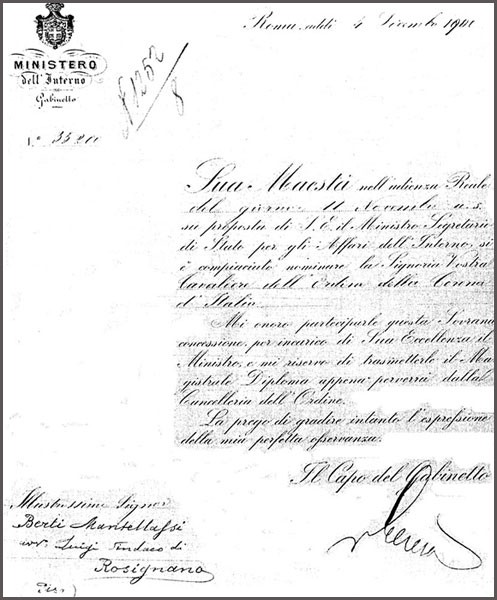 Roma, addì 4 Dicembre 19
MINISTERO
dell'Interno
Gabinetto
N° 1252
8
N.° 35200
Sua Maestà nell'udienza Reale
del giorno 11 Novembre u.s.
su proposta di S. E. il Ministro Segretario
di Stato per gli Affari dell'Interno, si
è compiaciuto nominare la Signoria Vostra
Cavaliere dell'Ordine della Corona
d'Italia.
Mi onoro parteciparle questa Sovrana
concessione, per incarico di Sua Eccellenza il
Ministro, e mi riservo di trasmetterle il Ma
gistrale Diploma appena perverrà dalla
Cancelleria dell'Ordine.
La prego di gradire intanto l'espressione
della mia perfetta osservanza.
Il Capo del Gabinetto
Illustrissimo Signor
Berti Mantellassi
avv. Luigi Sindaco di
Rosignano